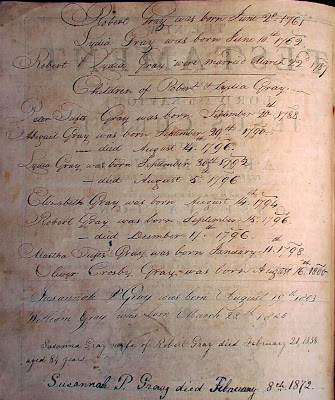 Robert Gray was born June 2d 1761
Lydia Gray was born June 11th 1763
Robert & Lydia Gray were married March 22d
Children of Robert & Lydia Gray
Tufts Gray was born September 20th 1788
Abigail Gray was born September 29th 1790
— died August 4. 1796.
Lydia Gray was born September 30th 1792
— died August 5th 1796
Elizabeth Gray was born August 14. 1794
Robert Gray was born September 15. 1796
— died December 17th 1796.
Martha Tufts Gray was born January 11th 1798
Oliver Crosby Gray was born August 16th
Susannah P Gray was born August 19th 1803
William Gray was born March
Susanna Gray wife of Robert Gray died February 21 1858.
aged 84 years.
Susannah P. Gray died February 8th. 1872.